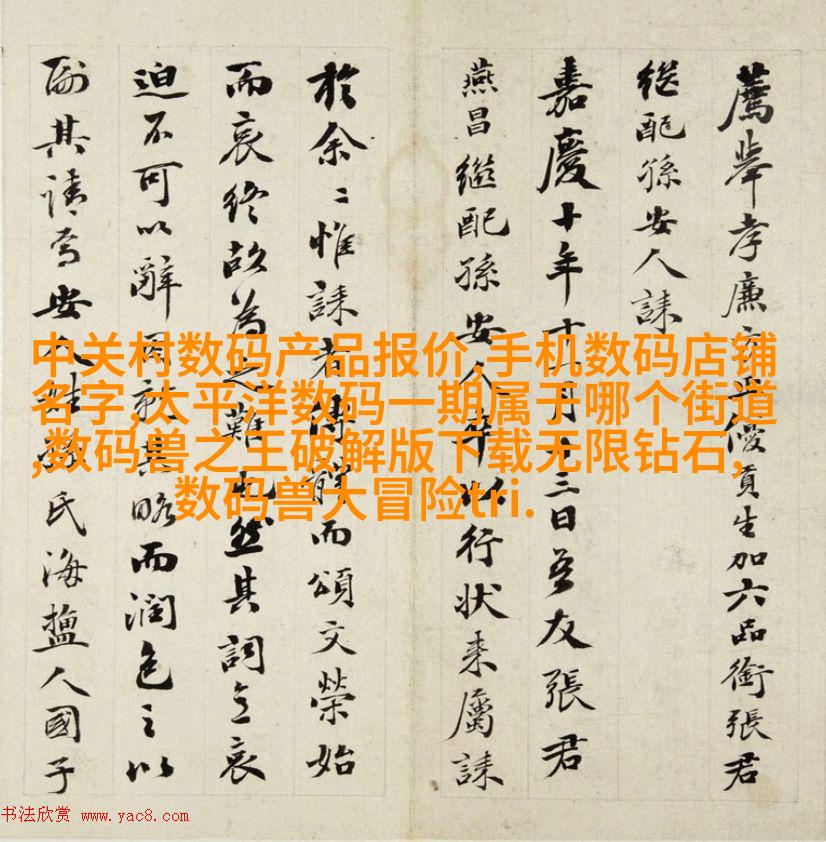 薦舉孝廉方正優貢生加六品銜張君
继配孫安人誄
嘉慶十年十月十三日吾友張君
燕昌继配孫安人卒以行状来屬誄
於余〻惟誄者傳體而頌文榮始
而哀終故為之難也然其詞立哀
迫不可以辭因就其略而潤色之以
副其請焉安人姓氏海鹽人國子
中关村数码产品报价,手机数码店铺
名字,太平洋数码一期属于哪个街道
,数码兽之王破解版下载无限钻石,
数码兽大冒险tri.
书法欣赏 www.yac8.com